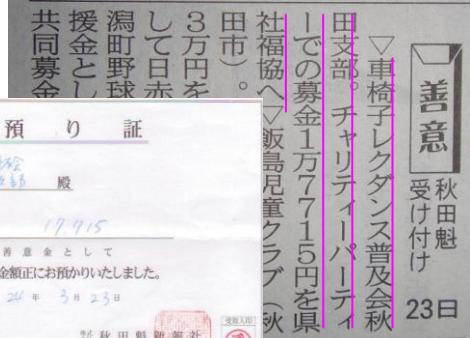 善意
秋田魁
受け付け
23日
▽車椅子レクダンス普及会秋
田支部。チャリティーパーティ
ーでの募金1万7715円を県
社福協へ▽飯島児童クラブ（秋
田市）。
3万円を
して日赤
潟町野球
援金とし
共同募金
預り証
殿
17,715
善意金として
金額正にお預かりいたしました。
24年3月23日
秋田魁新報社